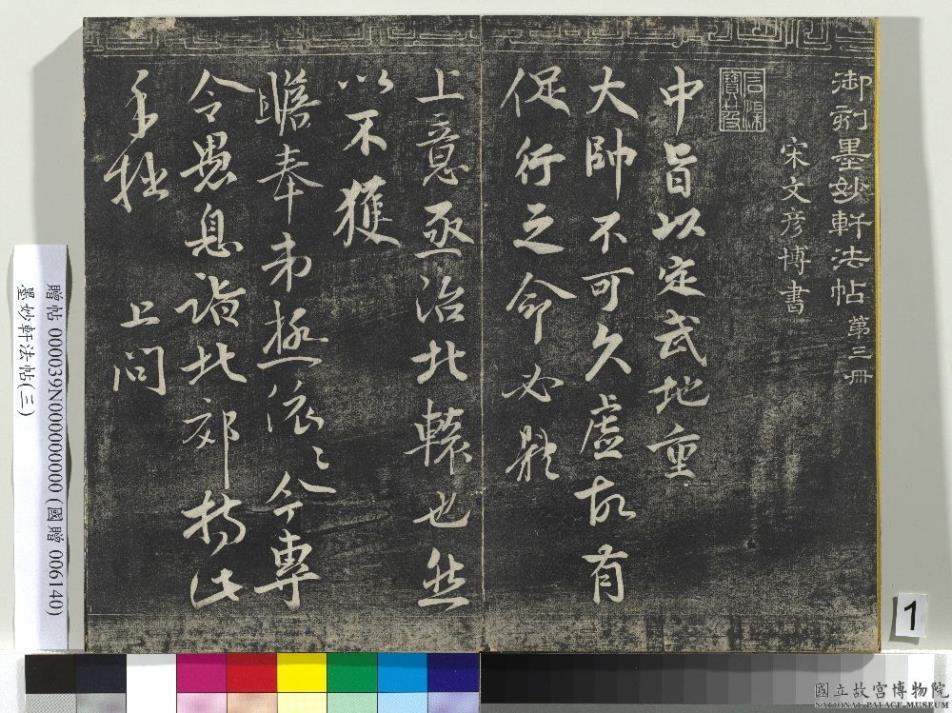 御刻墨妙軒法帖 第三冊
宋文彥博書
中旨以定武地重
大帥不可久虛故有
促行之命必體
上意亟治北轅也然
以不獲
瞻奉弟極依〻今專
令愚息詣北郊持此
手極 上問
贈帖 000039N000000000 (國贈 006140)
墨妙軒法帖(三)
1
國立故宮博物院
NATIONAL PALACE MUSEUM